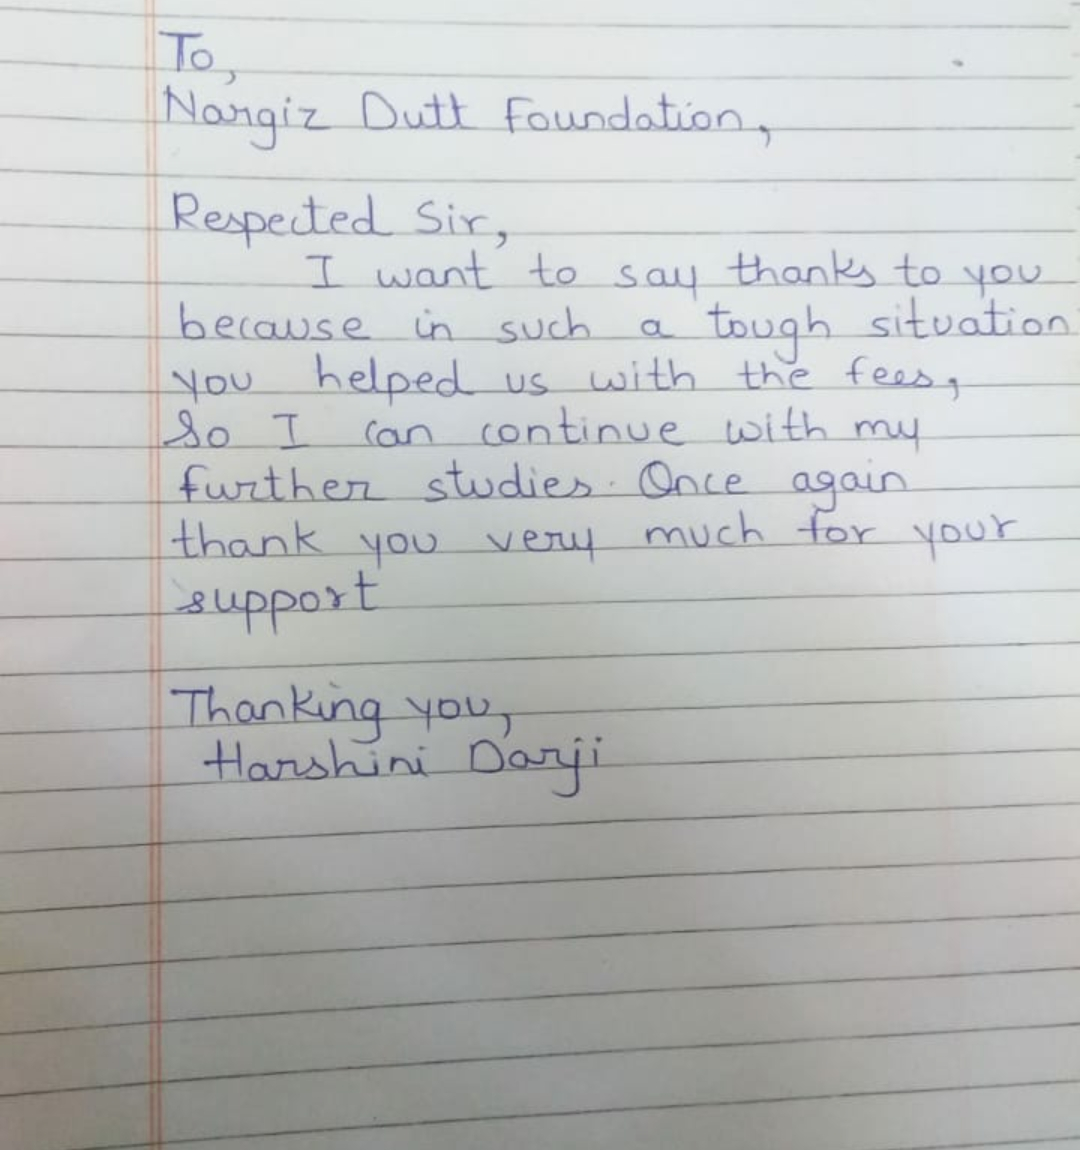 To,
Nargiz Dutt Foundation,
Respected Sir,
I want to say thanks to you
because in such a tough situation
you helped us with the fees,
So I can continue with my
further studies. Once again
thank you very much for your
support
Thanking you,
Harshini Darji